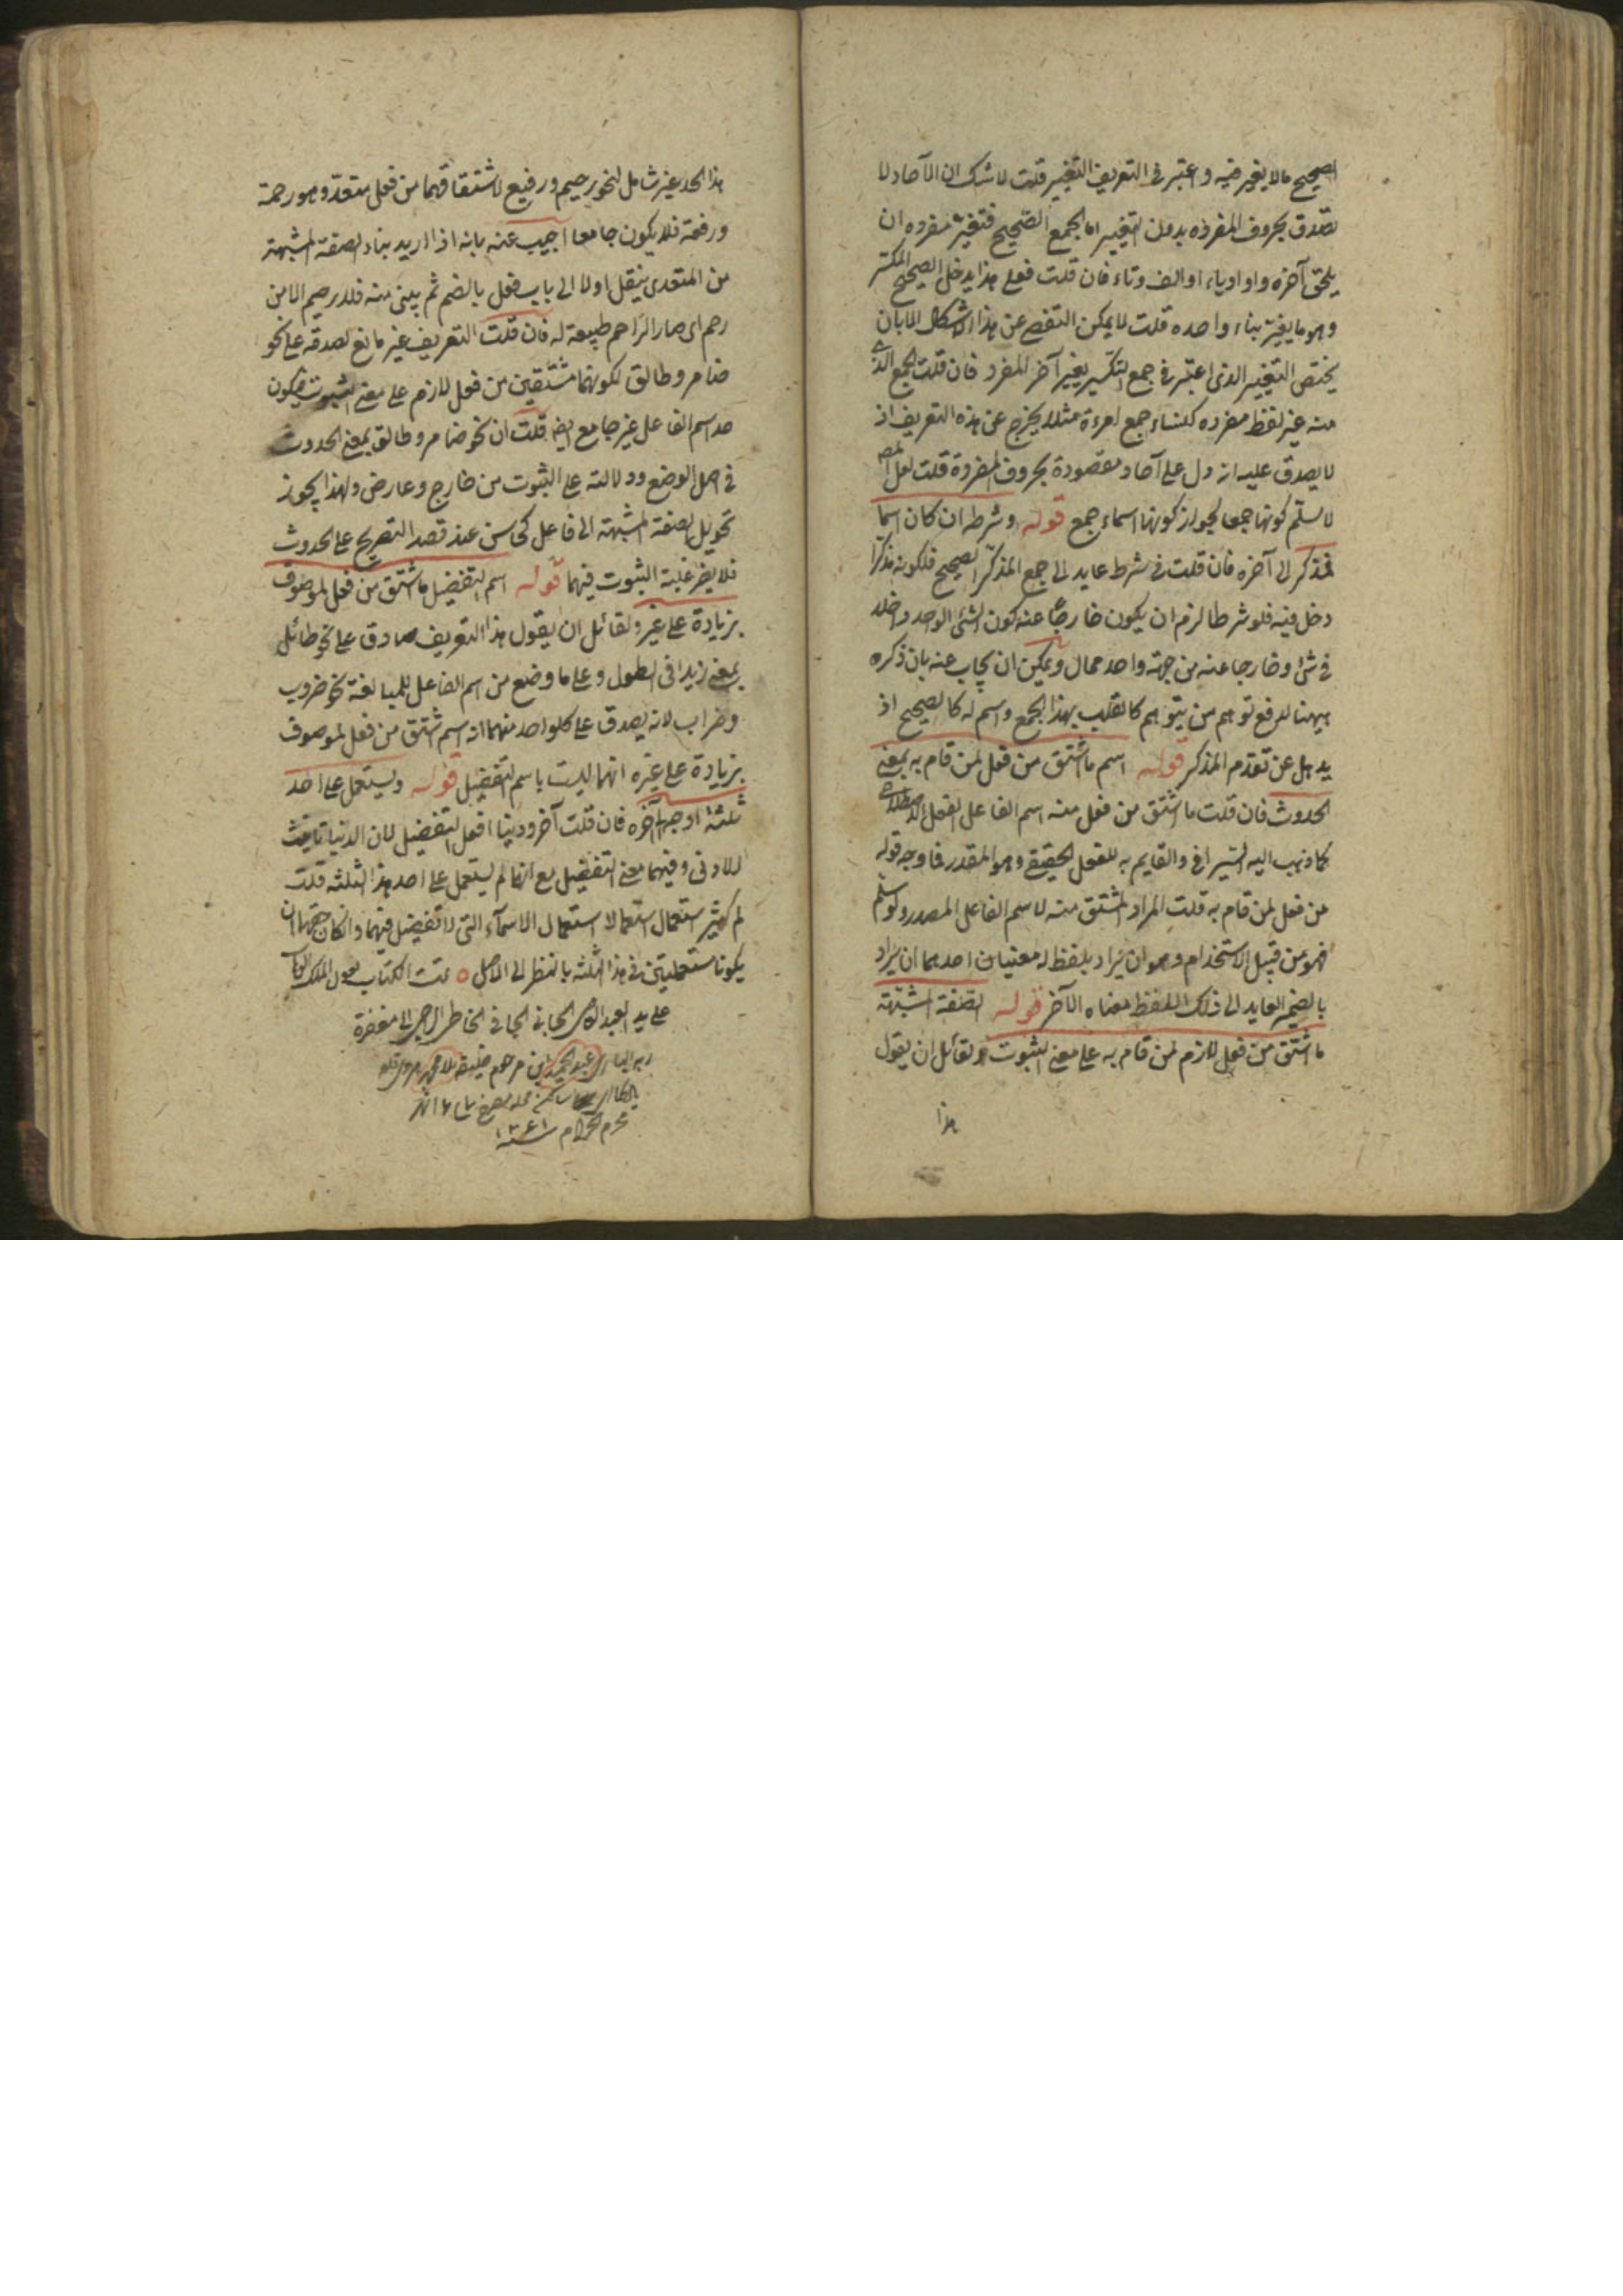 الصحيح مالا يغير فيه واعتبر فى التعريف التغيير قلت لا شك ان الآحاد لا
تصدق بحروف المفرده بدون التغيير اما الجمع الصحيح فتغير مفرده ان
يلحق آخره واو او ياء او الف وتاء فان قلت فعلى هذا يدخل الصحيح المكسر
وهو ما يغير بناء واحده قلت لا يمكن التفصى عن هذا الاشكال الا بان
يختص التغيير الذى اعتبر فى جمع التكسير بغير آخر المفرد فان قلت الجمع الذى
منه غير لفظ مفرده كنساء جمع امرءة مثلا يخرج عن هذه التعريف اذ
لا يصدق عليه انه دل على آحاد مقصودة بحروف المفردة قلت لعل المصـ
لا يسلم كونها جمعا لجواز كونها اسماء جمع قوله وشرطه ان كان اسما
فمذكر الى آخره فان قلت فى شرط عايد الى جمع المذكر الصحيح فلكونه مذكرا
دخل فيه فلو شرطا لزم ان يكون خارجا عنه كون الشئ الواحد داخلا
فى شئ وخارجا عنه من جهة واحد محال ويمكن ان يجاب عنه بان ذكره
ههنا لدفع توهم من يتوهم كالقلب بهذا الجمع واسم له كالصحيح اذ
يدهل عن تقدم المذكر قوله اسم ما اشتق من فعل لمن قام به بمعنى
الحدوث فان قلت ما اشتق من فعل منه اسم الفاعل الفعل الاصطلاحى
كما ذهب اليه السيرافى والقايم به للفعل الحقيقى وهو المقدر فما وجه قوله
من فعل لمن قام به قلت المراد المشتق منه لاسم الفاعل المصدر ولو سلم
فهو من قبيل الاستخدام وهو ان يراد بلفظ له معنيان احدهما ان يراد
بالضمير العايد الى ذلك اللفظ معناه الآخر قوله الصفة المشبهة
ما اشتق من فعل لازم لمن قام به على معنى الثبوت ولقائل ان يقول
هذا
هذا الحد غير شامل لنحو رحيم ورفيع لاشتقاقهما من فعل متعد وهو رحمة
ورفعة فلا يكون جامعا اجيب عنه بانه اذا اريد بناء الصفة المشبهة
من المتعدى ينقل اولا الى باب فعل بالضم ثم يبنى منه فلا رحيم الا من
رحم اى صار الراحم طبيعة له فان قلت التعريف غير مانع لصدقه على نحو
ضامر وطالق لكونهما مشتقين من فعل لازم على معنى الثبوت فيكون
حد اسم الفاعل غير جامع ايضا قلت ان نحو ضامر وطالق بمعنى الحدوث
فى اصل الوضع ودلالته على الثبوت من خارج وعارض ولهذا يجوز
تحويل الصفة المشبهة الى فاعل كحاسن عند قصد التصريح على الحدوث
فلا يضر غلبة الثبوت فيهما قوله اسم التفضيل ما اشتق من فعل لموصوف
بزيادة على غير ولقائل ان يقول هذا التعريف صادق على نحو طائل
بمعنى زيدا فى الطول وعلى ما وضع من اسم الفاعل للمبالغة نحو ضروب
وضراب لانه يصدق على كلواحد منهما انه اسم اشتق من فعل لموصوف
بزيادة على غيره انهما ليست باسم التفضيل قوله ويستعمل على احد
ثلثة اوجه آخره فان قلت آخر ودنيا افعل التفضيل لان الدنيا تانيث
للادنى وفيهما معنى التفضيل مع انهما لم يستعمل على احد هذا الثلثه قلت
لم كثير استعمال استعملا استعمال الاسمآء التى لا تفضيل فيهما وانكان حقهما ان
يكونا مستعملتين فى هذا الثلثه بالنظر الى الاصل ٥ تمت الكتاب بعون الملك الوهاب
على يد العبد الجانى الخاطر الراجى الى مغفرة
ربه البارى عبد الحميد ابن مرحوم خليفه ملا محمد
محرم الحرام سنة ١٢٤١